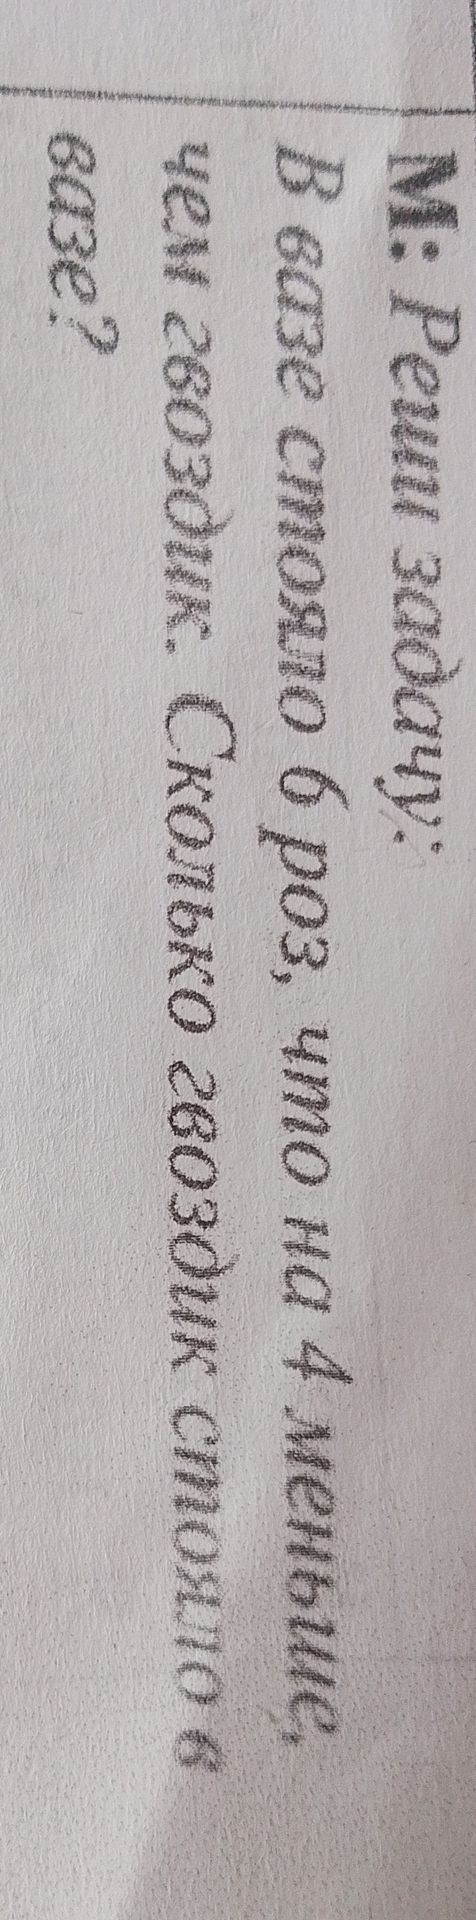 М: Реши задачу:
В вазе стояло 6 роз, что на 4 меньше,
чем гвоздик. Сколько гвоздик стояло в
вазе?